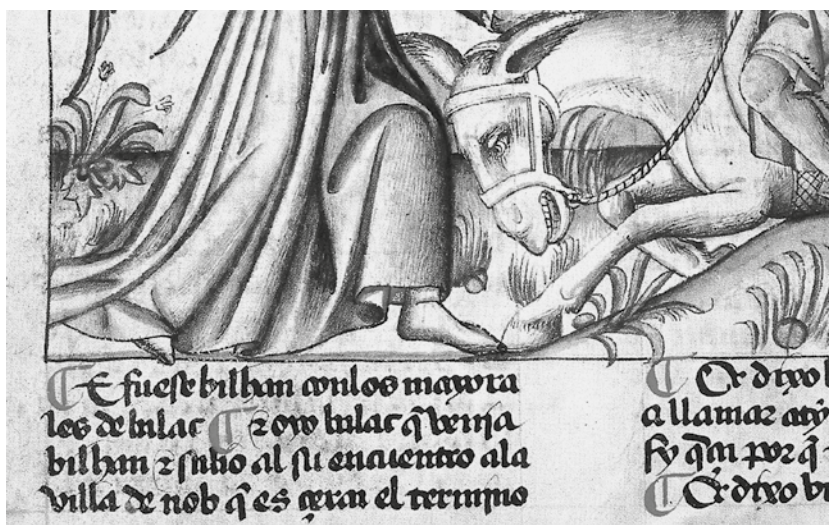 E fuese bilham con los mayora
les de balac ⁊ oyo balac q̃ venja
bilham ⁊ salio al su encuentro ala
villa de nob q̃ es çerca el termjno
⁊ dixo b
a llamar aty
sy q̃ por q̃
⁊ dixo b